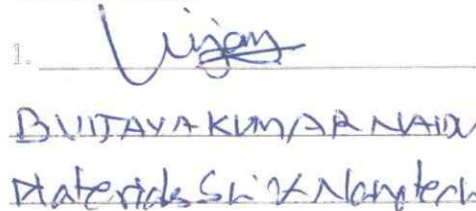 Vijay
B VIJAYA KUMAR NAIDU
Materials Sci & Nanotech